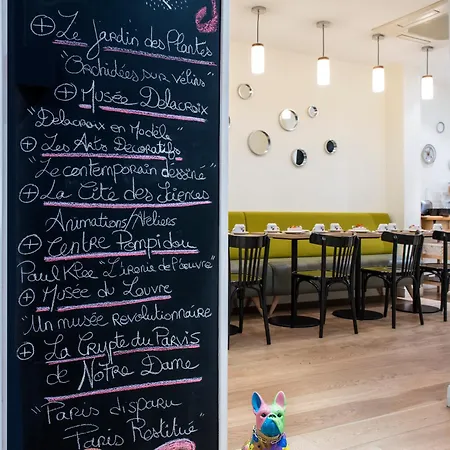 ⊕ Le Jardin des Plantes
"Orchidées sur vélins"
⊕ Musée Delacroix
"Delacroix en modèle"
⊕ Les Arts Décoratifs
"Le contemporain dessiné"
⊕ La Cité des Sciences
Animations/Ateliers
⊕ Centre Pompidou
Paul Klee "L'ironie de l'œuvre"
⊕ Musée du Louvre
"Un musée revolutionnaire
⊕ La Crypte du Parvis
de Notre Dame
"Paris disparu
Paris Restitué"